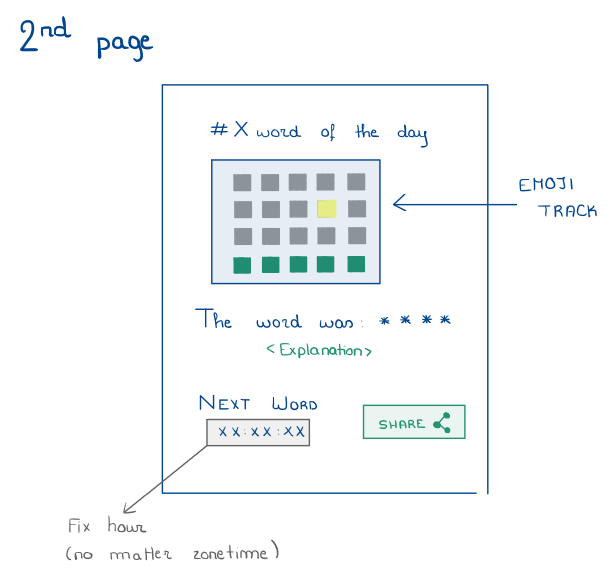 2nd page
# X word of the day
EMOJI
TRACK
The word was: ****
<Explanation>
NEXT WORD
XX:XX:XX
SHARE
Fix hour
(no matter zonetime)